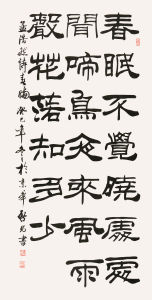 春眠不覺曉處處
聞啼鳥夜來風雨
聲花落知多少
孟浩然詩春曉癸巳年冬於京華